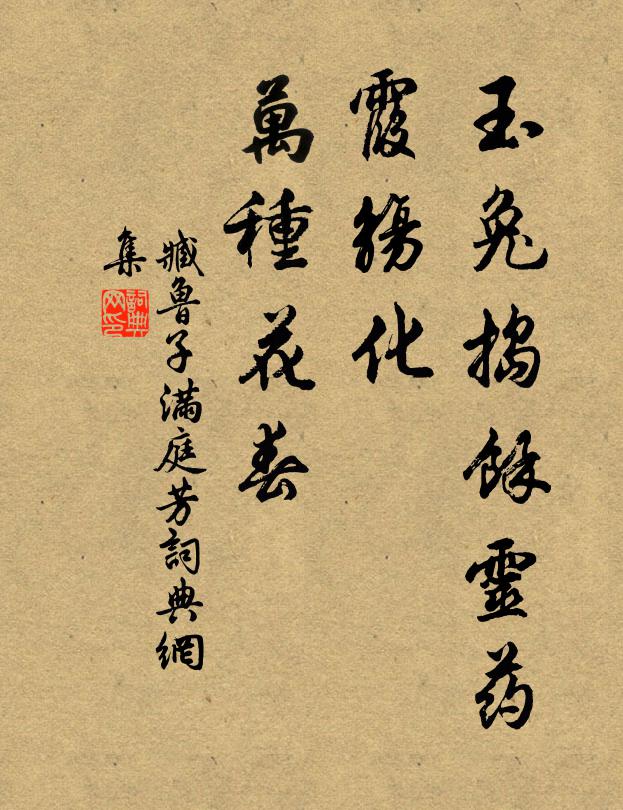 玉兔捣餘靈药
霞觴化
萬種花春
臧魯子滿庭芳詞典網
集
詞典
网印